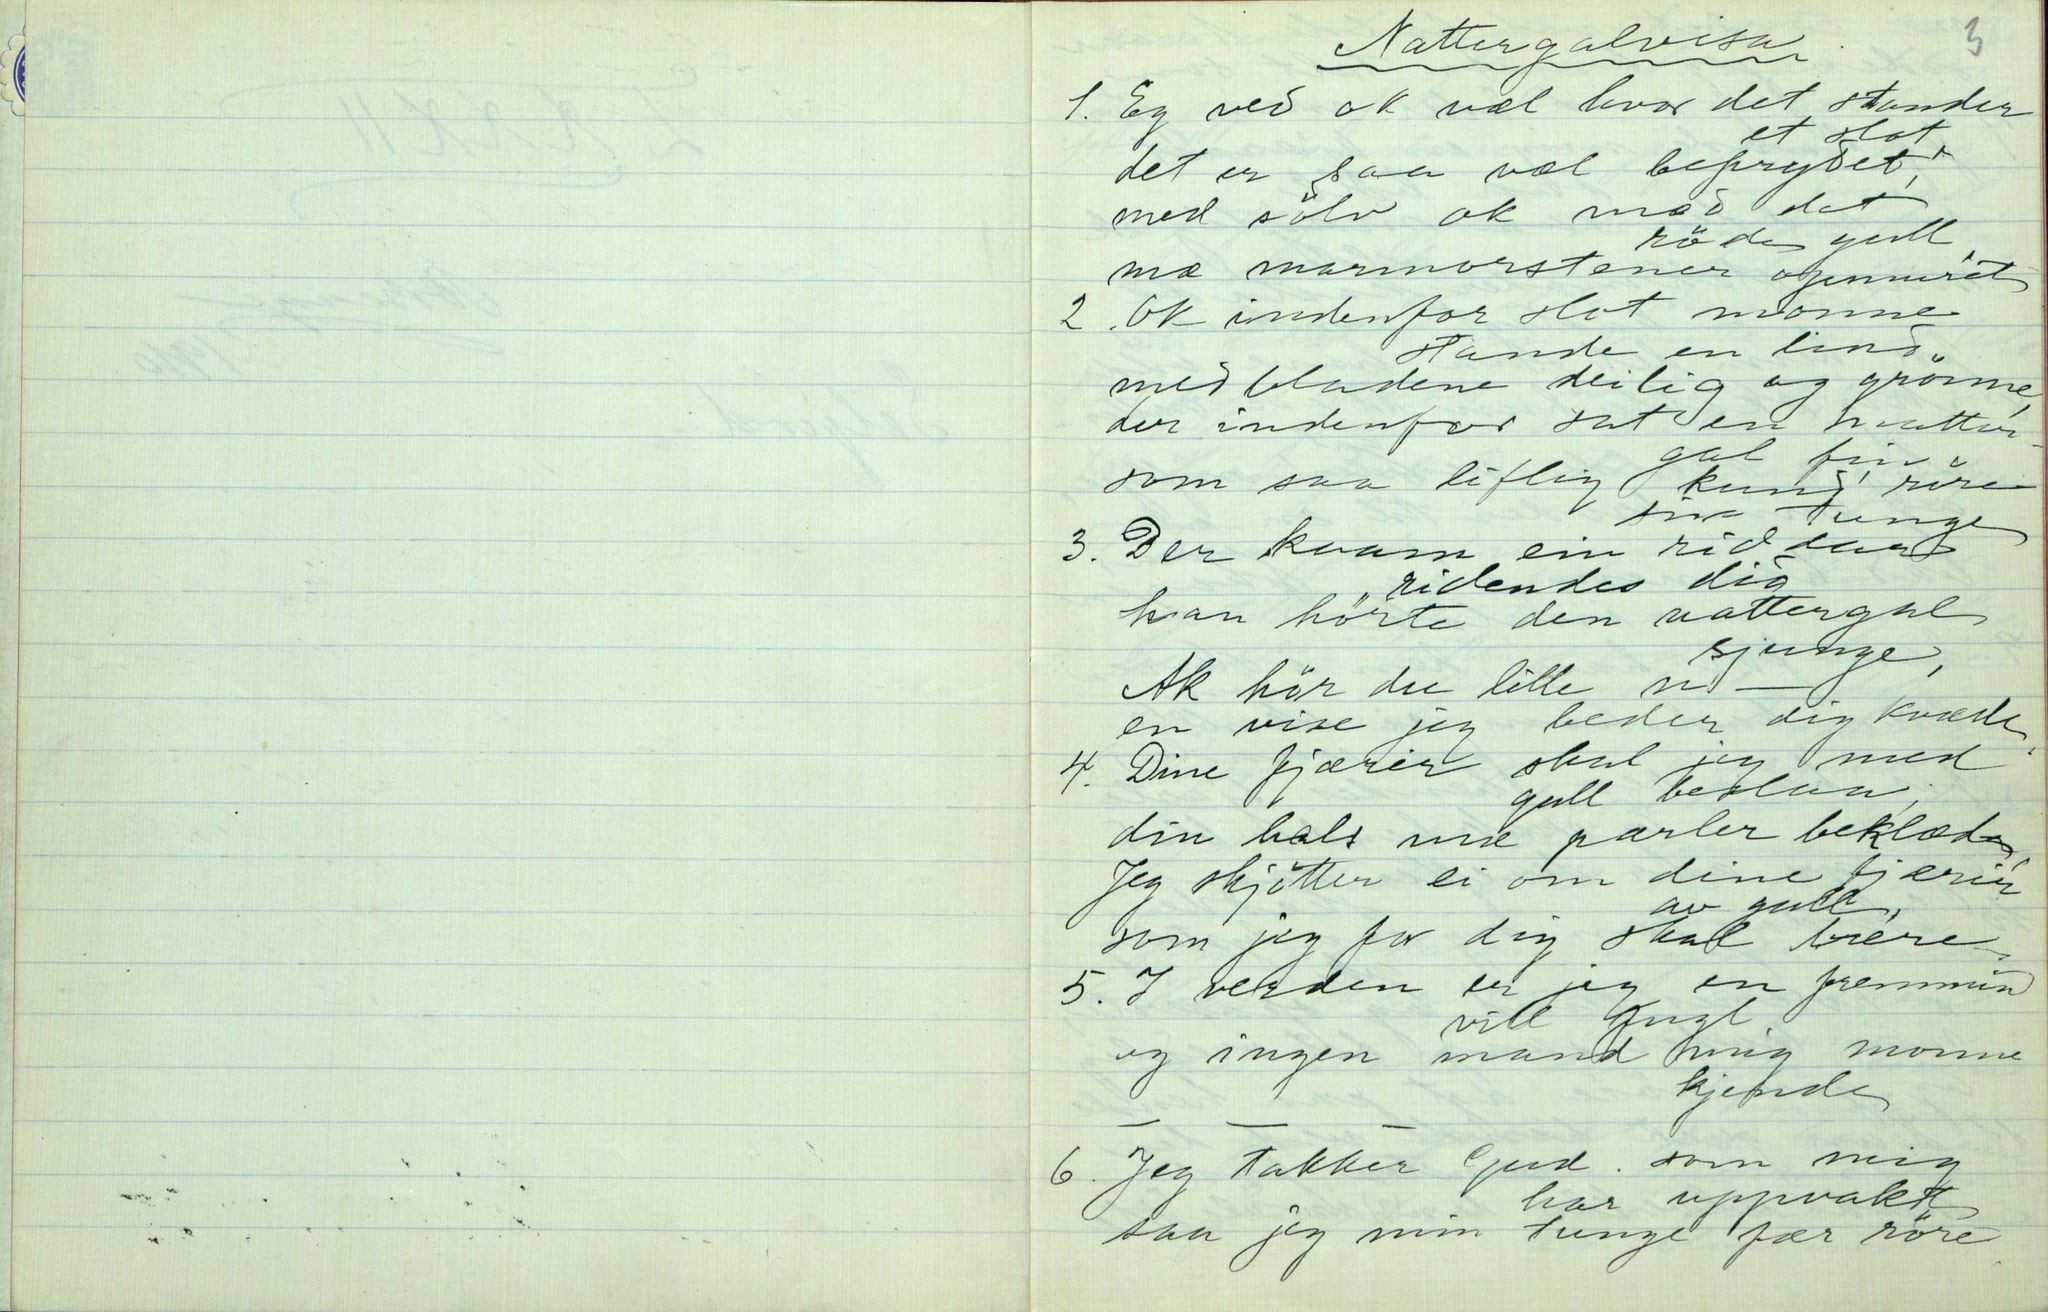 3
Nattergalvisa
1. Eg ved ok væl hvor det stander
et slot
det er saa væl beprydet,
med sölv ok med det
röde gull,
mæ marmorstener opmuret
2. Ok indenfor slot monne
stande en lind
med bladene deilig og grönne,
der indenfor sat en natter-
gal fin
som saa liflig kund röre
sin tunge
3. Der kvam ein riddar
ridendes dig
han hörte den nattergal
sjunge,
Ak hör du lille n —
en vise jeg beder dig kvæde.
4. Dine fjærer skal jeg med
gull beslaa,
din hals mæ pærler beklæde,
Jeg skjötter ei om dine fjærer
av gull,
som jeg for dig skal bære.
5. I verden er jeg en fremmen
vill fugl
og ingen mand mig monne
kjende
— — —
6. Jeg takker Gud som mig
har uppvakt
saa jeg min tunge fær röre